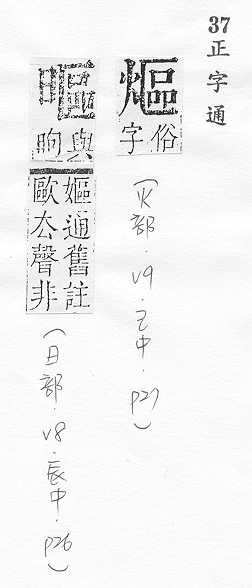 37正字通
熰
俗
字
(火部.v9.巳中.p27)
與
昫
嫗通舊註
歐厺聲非
(日部.v8.辰中.p26)